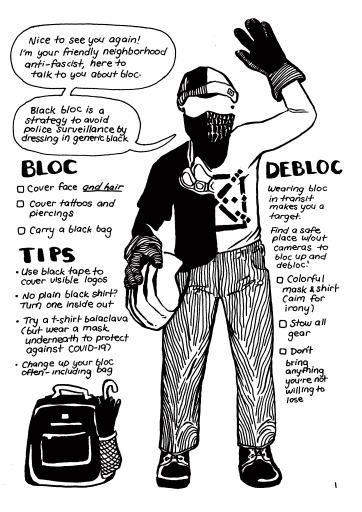 Nice to see you again!
I'm your friendly neighborhood
anti-fascist, here to
talk to you about bloc.
Black bloc is a
strategy to avoid
police surveillance by
dressing in generic black
BLOC
Cover face and hair
Cover tattoos and
piercings
Carry a black bag
TIPS
• Use black tape to
cover visible logos
• No plain black shirt?
Turn one inside out
• Try a t-shirt balaclava
(but wear a mask
underneath to protect
against COVID-19)
• Change up your bloc
often - including bag
DEBLOC
Wearing bloc
in transit
makes you a
target.
Find a safe
place w/out
cameras to
bloc up and
debloc!
Colorful
mask & shirt
(aim for
irony)
Stow all
gear
Don't
bring
anything
you're not
willing to
lose
1